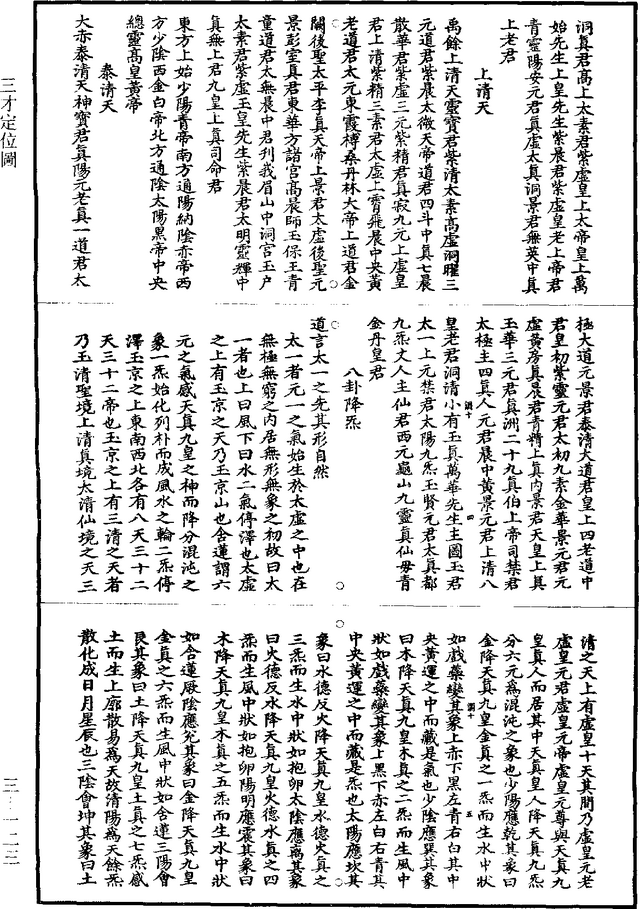 洞真君高上太素君紫虛皇上太帝皇上萬
始先生上皇先生紫晨君紫虛皇老上帝君
青靈陽安元君真虛太真洞景君無英中真
上老君
上清天
禹餘上清天靈寶君紫清太素高虛洞曜三
元道君紫晨太微天帝道君四斗中真七晨
散華君紫虛三元紫精君真寂九元上虛皇
君上清紫精三素君太虛上霄飛晨中央黃
老道君太元東霞榑桑丹林大帝上道君金
闕後聖太平李真天帝上景君太虛後聖元
景彭室真君東華方諸宮高晨師玉保王青
童道君太無晨中君刊峩眉山中洞宮玉户
太素君紫虛玉皇先生紫晨君太明靈輝中
真無上君九皇上真司命君
東方上始少陽青帝南方通陽納陰赤帝西
方少陰西金白帝北方通陰太陽黑帝中央
總靈高皇黃帝
泰清天
大赤泰清天神寶君真陽元老真一道君太
極大道元景君泰清大道君皇上四老道中
君皇初紫靈元君太初九素金華景元君元
虛黃房真晨君青精上真內景君天皇上真
玉華三元君真洲二十九真伯上帝司禁君
太極主四真人元君晨中黃景元君上清八
皇老君洞清小有玉真萬華先生主圖玉君
太一上元禁君太陽九炁玉賢元君太真都
九炁文人主仙君西元龜山九靈真仙母青
金丹皇君
八卦降炁
道言太一之先其形自然
太一者元一之氣始生於太虛之中也在
無極無窮之內居無形無象之初故曰太
一者也上曰風下曰水二氣停澤也太虛
之上有玉京之天乃玉京山也含蓮謂六
元之氣感天真九皇之神而降分混沌之
象一炁始化列朴而成風水之輪二炁停
澤玉京之上東南西北各有八天三十二
天三十二帝也玉京之上有三清之天者
乃玉清聖境上清真境太清仙境之天三
清之天上有虛皇十天其間乃虛皇元老
虛皇元君虛皇元帝虛皇元尊與天真九
皇真人而居其中天真皇人降天真九炁
分六元為混沌之象也少陽應乾其象曰
金降天真九皇金真之一炁而生水中狀
如戲藥變其象上赤下黑左青右白其中
央黃運之中而藏是氣也少陰應巽其象
曰木降天真九皇木真之二炁而生風中
狀如戲藥變其象上黑下赤左白右青其
中央黃運之中而藏是炁也太陽應坎其
象曰水德反火降天真九皇水德火真之
三炁而生水中狀如抱卵太陰應离其象
曰火德反水降天真九皇火德水真之四
炁而生風中狀如抱卵陽明應震其象曰
木降天真九皇木真之五炁而生水中狀
如含蓮厥陰應兊其象曰金降天真九皇
金真之六炁而生風中狀如含蓮三陽會
艮其象曰土降天真九皇土真之七炁感
土而生上廓散易為天故清陽為天餘炁
散化成日月星辰也三陰會坤其象曰土
三才定位圖
三—一二三